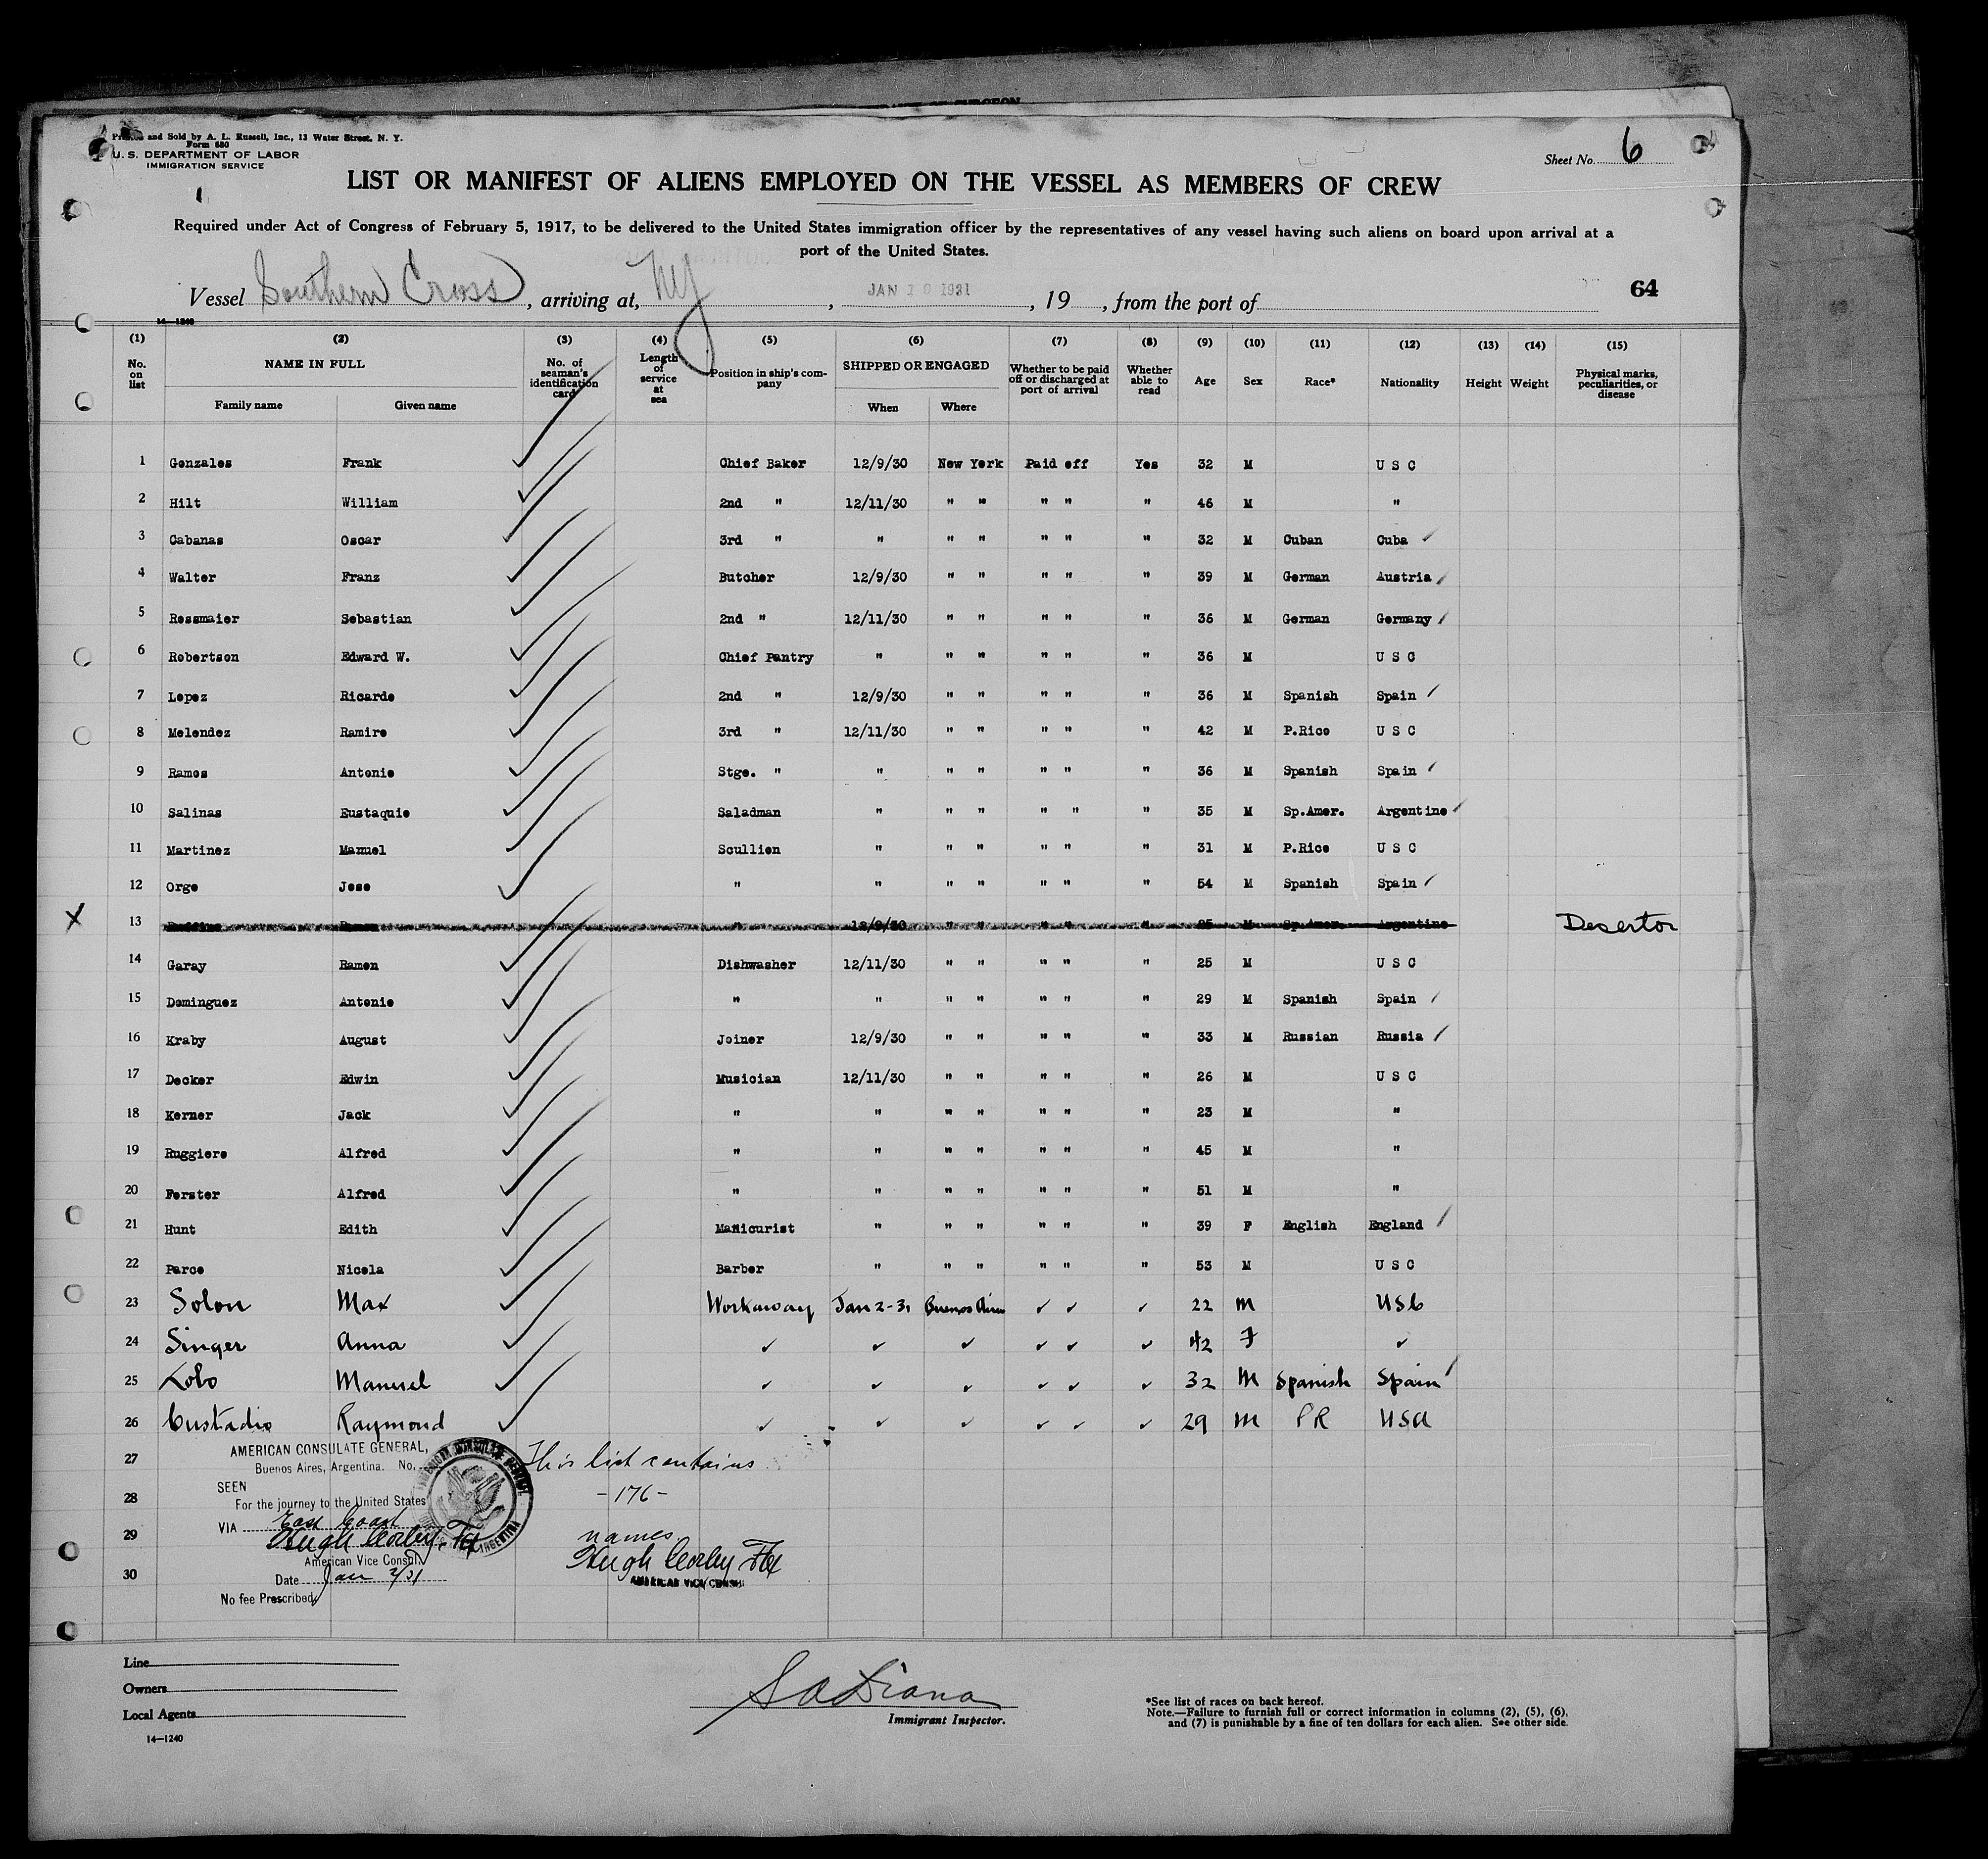 Printed and Sold by A. L. Russell, Inc., 13 Water Street, N. Y.
Form 680
U. S. DEPARTMENT OF LABOR
IMMIGRATION SERVICE
Sheet No. 6
LIST OR MANIFEST OF ALIENS EMPLOYED ON THE VESSEL AS MEMBERS OF CREW
Required under Act of Congress of February 5, 1917, to be delivered to the United States immigration officer by the representatives of any vessel having such aliens on board upon arrival at a
port of the United States.
Vessel Southern Cross, arriving at, NY, JAN 1931, 19 , from the port of 64
14—1240
(1) (2) (3) (4) (5) (6) (7) (8) (9) (10) (11) (12) (13) (14) (15)
No. on list NAME IN FULL No. of seaman's identification card Length of service at sea Position in ship's company SHIPPED OR ENGAGED Whether to be paid off or discharged at port of arrival Whether able to read Age Sex Race* Nationality Height Weight Physical marks, peculiarities, or disease
Family name Given name When Where
1 Gonzales Frank Chief Baker 12/9/30 New York Paid off Yes 32 M U S C
2 Hilt William 2nd " 12/11/30 " " " " " 46 M "
3 Cabanas Oscar 3rd " " " " " " " 32 M Cuban Cuba
4 Walter Franz Butcher 12/9/30 " " " " " 39 M German Austria
5 Rossmaier Sebastian 2nd " 12/11/30 " " " " " 36 M German Germany
6 Robertson Edward W. Chief Pantry " " " " " " 36 M U S C
7 Lopez Ricardo 2nd " 12/9/30 " " " " " 36 M Spanish Spain
8 Melendez Ramiro 3rd " 12/11/30 " " " " " 42 M P.Rico U S C
9 Ramos Antonio Stge. " " " " " " " 36 M Spanish Spain
10 Salinas Eustaquio Saladman " " " " " " 35 M Sp.Amer. Argentine
11 Martinez Manuel Scullion " " " " " " 31 M P.Rico U S C
12 Orge Jose " " " " " " " 54 M Spanish Spain
X 13 " 12/9/30 " " " " " 25 M Sp.Amer. Argentine Desertor
14 Garay Ramon Dishwasher 12/11/30 " " " " " 25 M U S C
15 Dominguez Antonio " " " " " " " 29 M Spanish Spain
16 Kraby August Joiner 12/9/30 " " " " " 33 M Russian Russia
17 Decker Edwin Musician 12/11/30 " " " " " 26 M U S C
18 Kerner Jack " " " " " " " 23 M "
19 Ruggiere Alfred " " " " " " " 45 M "
20 Forster Alfred " " " " " " " 51 M "
21 Hunt Edith Manicurist " " " " " " 39 F English England
22 Parce Nicola Barber " " " " " " 53 M U S C
23 Solon Max Workaway Jan 2-31 Buenos Aires ✓ ✓ ✓ 22 M USC
24 Singer Anna ✓ ✓ ✓ ✓ ✓ ✓ 42 F ✓
25 Lobo Manuel ✓ ✓ ✓ ✓ ✓ ✓ 32 M Spanish Spain
26 Custadio Raymond ✓ ✓ ✓ ✓ ✓ ✓ 29 M PR USA
AMERICAN CONSULATE GENERAL,
Buenos Aires, Argentina. No.
27 This list contains
SEEN
28 -176-
For the journey to the United States
VIA East Coast
29 names
Hugh Corby Fox
American Vice Consul.
Hugh Corby Fox
AMERICAN VICE CONSUL
30
Date Jan 2/31
No fee Prescribed
Line
Owners
Local Agents
14—1240
Immigrant Inspector.
*See list of races on back hereof.
Note.—Failure to furnish full or correct information in columns (2), (5), (6),
and (7) is punishable by a fine of ten dollars for each alien. See other side.